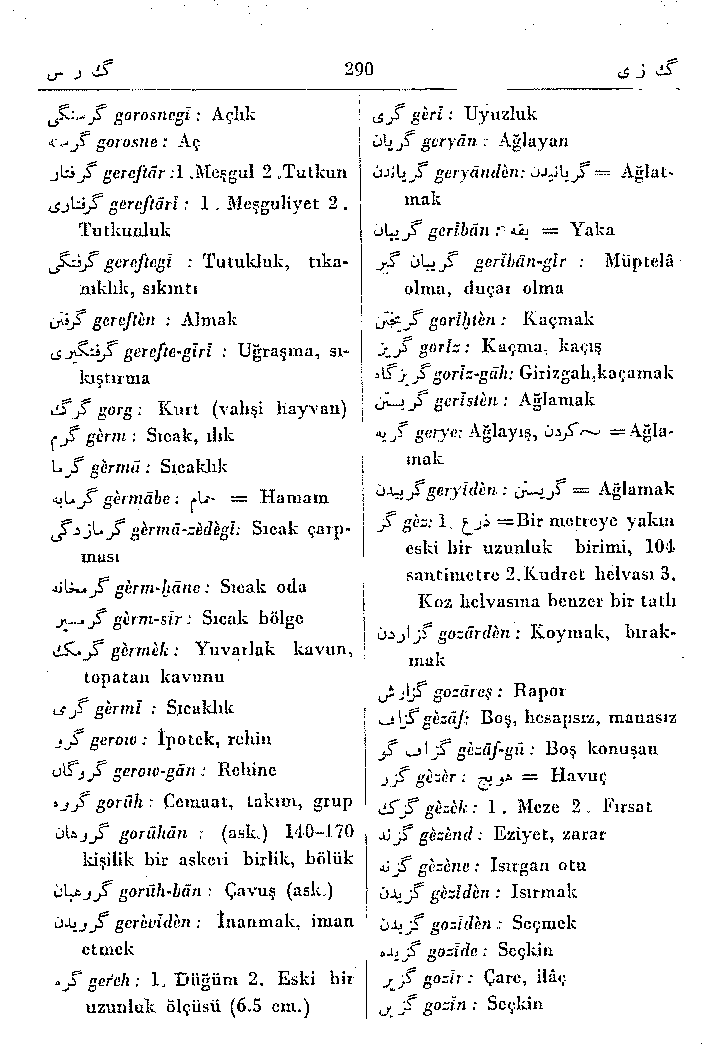 گ ر س 290 گ ز ی
گرسنگی gorosnegī : Açlık
گرسنه gorosne : Aç
گرفتار gereftār :1 .Meşgul 2 .Tutkun
گرفتاری gereftārī : 1 . Meşguliyet 2 .
Tutkunluk
گرفتگی gereftegī : Tutukluk, tıka-
nıklık, sıkıntı
گرفتن gereften : Almak
گرفتگیری gerefte-gīrī : Uğraşma, sı-
kıştırma
گرگ gorg : Kurt (vahşi hayvan)
گرم gèrm : Sıcak, ılık
گرما gèrmā : Sıcaklık
گرمابه gèrmābe : حمام = Hamam
گرمازدگی gèrmā-zèdègī: Sıcak çarp-
ması
گرمخانه gèrm-ḫāne : Sıcak oda
گرمسیر gèrm-sīr : Sıcak bölge
گرمک gèrmèk : Yuvarlak kavun,
topatan kavunu
گرمی gèrmī : Sıcaklık
گرو gerow : İpotek, rehin
گروگان gerow-gān : Rehine
گروه gorūh : Cemaat, takım, grup
گروهان gorūhān : (ask.) 140-170
kişilik bir askeri birlik, bölük
گروهبان gorūh-bān : Çavuş (ask.)
گرویدن gerèvīdèn : İnanmak, iman
etmek
گره gereh : 1. Düğüm 2. Eski bir
uzunluk ölçüsü (6.5 cm.)
گری gèrī : Uyuzluk
گریان geryān : Ağlayan
گریاندن geryāndèn: گریانیدن = Ağlat-
mak
گریبان gerībān : یقه = Yaka
گریبان گیر gerībān-gīr : Müptelâ
olma, duçar olma
گریختن gorīḫtèn : Kaçmak
گریز gorīz : Kaçma, kaçış
گریزگاه gorīz-gāh: Girizgah,kaçamak
گریستن gerīstèn : Ağlamak
گریه gerye: Ağlayış, کردن ~ = Ağla-
mak
گرییدن geryīdèn : گریستن = Ağlamak
گز gèz: 1. ذرع =Bir metreye yakın
eski bir uzunluk birimi, 104
santimetre 2.Kudret helvası 3.
Koz helvasına benzer bir tatlı
گزاردن gozārdèn : Koymak, bırak-
mak
گزارش gozāreş : Rapor
گزاف gèzāf: Boş, hesapsız, manasız
گزاف گو gèzāf-gū : Boş konuşan
گزر gèzèr : هویج = Havuç
گزک gèzèk : 1 . Meze 2 . Fırsat
گزند gèzènd : Eziyet, zarar
گزنه gèzène : Isırgan otu
گزیدن gèzīdèn : Isırmak
گزیدن gozīdèn : Seçmek
گزیده gozīde : Seçkin
گزیر gozīr : Çare, ilâç
گزین gozīn : Seçkin